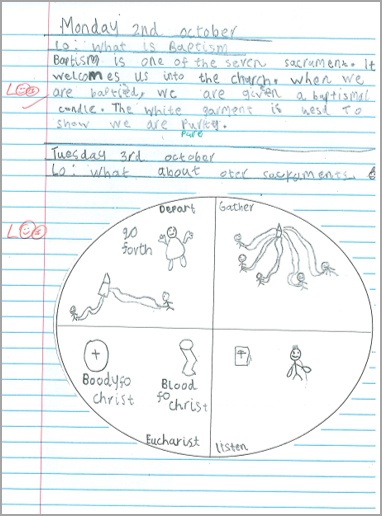 Monday 2nd october
Lo: What is Baptism
Baptism is one of the seven sacrament. It
welcomes us into the church. when we
are baptied, we are given a baptismal
candle. The white garment is uesd To
show we are Purity.
Pure
Tuesday 3rd october
Lo: what about oter sacraments
Depart
Gather
go
forth
Boody fo
christ
Blood
fo christ
Eucharist
Listen